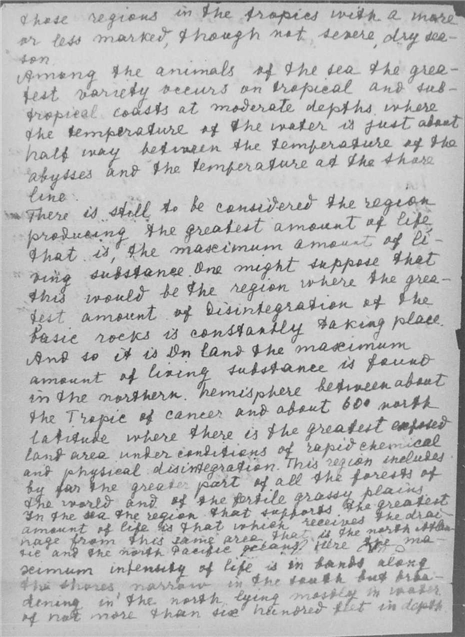 those regions in the tropics with a more
or less marked, though not severe, dry sea-
son
Among the animals of the sea the grea-
test variety occurs on tropical and sub-
tropical coasts at moderate depths where
the temperature of the water is just about
half way between the temperature of the
abysses and the temperature at the shore
line
There is still to be considered the region
producing the greatest amount of life,
that is, the maximum amount of li-
ving substance. One might suppose that
this would be the region where the grea-
test amount of disintegration of the
basic rocks is constantly taking place.
And so it is On land the maximum
amount of living substance is found
in the northern hemisphere between about
the Tropic of cancer and about 600 north
latitude where there is the greatest exposed
land area under conditions of rapid chemical
and physical disintegration. This region includes
by far the greater part of all the forests of
the world and of the fertile grassy plains
In the sea the region that supports the greatest
amount of life is that which receives the drai-
nage from this same area, that is the north Atlan-
tic and the north Pacific oceans. Here the ma-
ximum intensity of life is in bands along
the shores narrow in the south but broa-
dening in the north, lying mostly in water
of not more than six hundred feet in depth